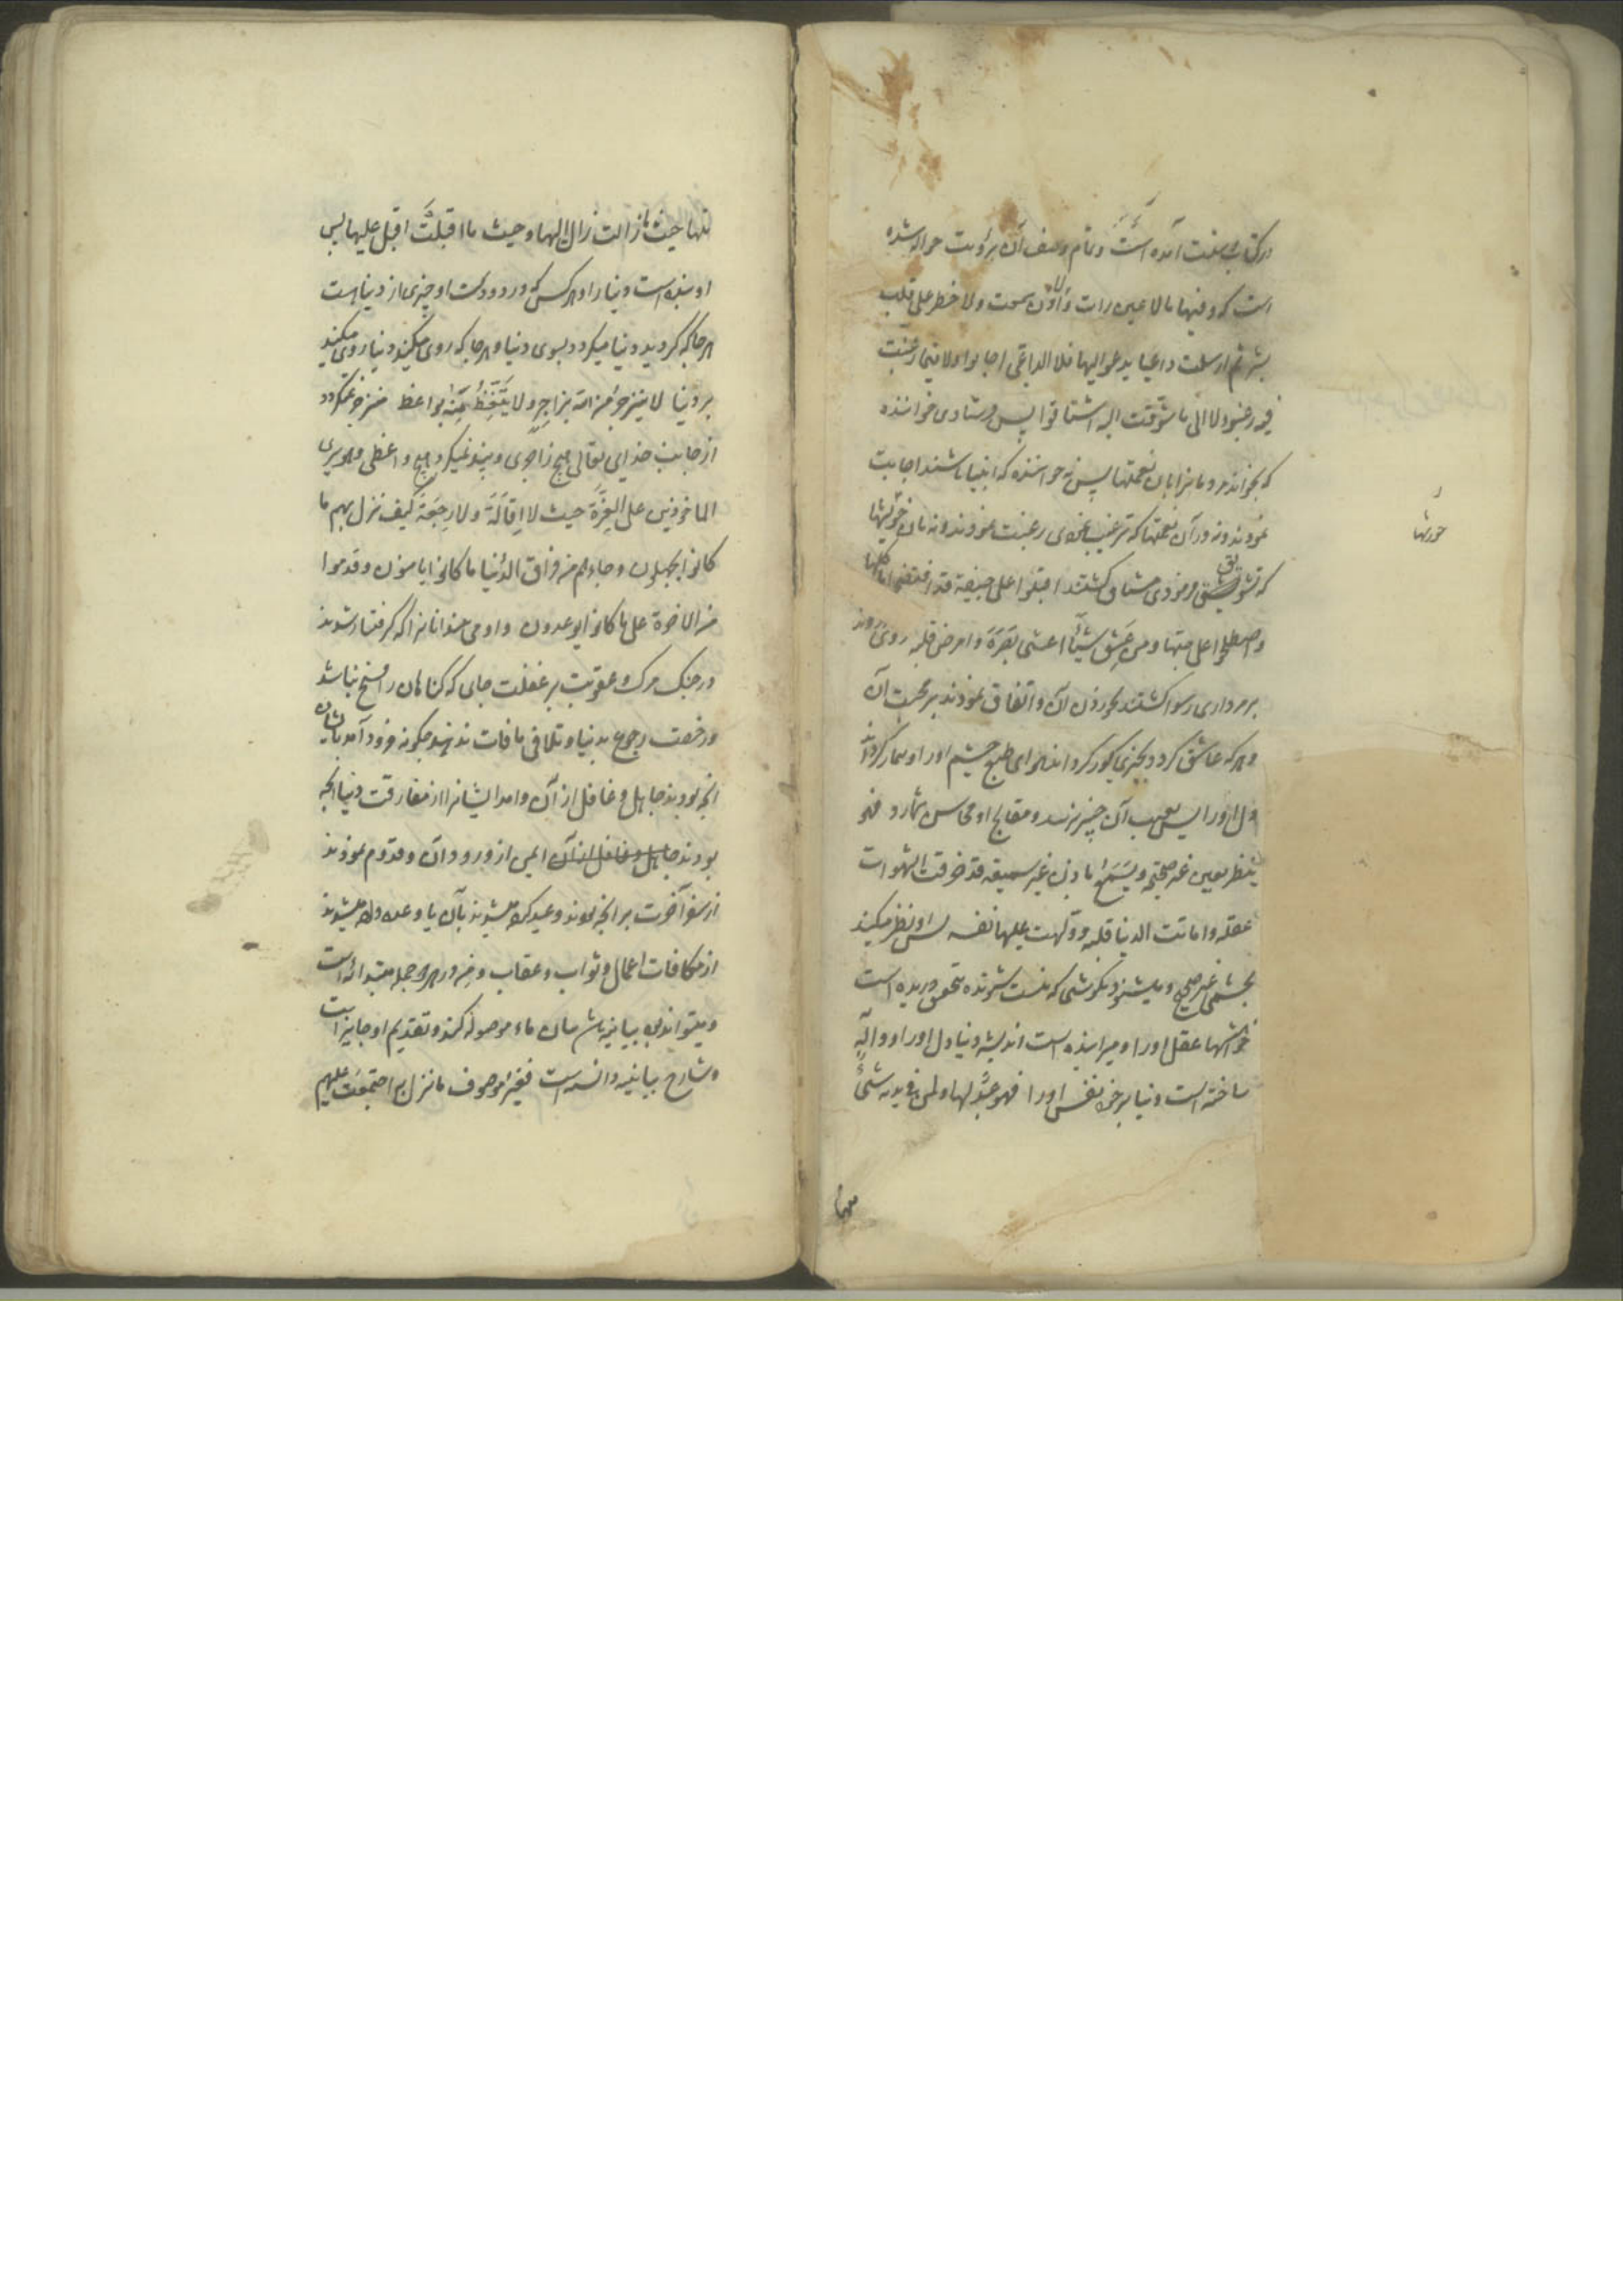 در کتاب و سنت آمده است و تمام وصف آن برؤیت حواله شده
است که و فیها ما لا عین رات و لا اذن سمعت و لا خطر علی قلب
بشر ثم ارسلت داعیا یدعو الیها فلا الداعی اجابوا و لا فیما رغبت
فیه رغبوا و لا الی ما شوقت الیه اشتاقوا پس فرستادی خواننده
که بخواند مردمانرا بآن نعمتها پس نه خواننده که انبیا باشند اجابت
نمودند و نه در آن نعمتها که ترغیب نمودی رغبت نمودند و نه بآن خوبیها
که تشویق فرمودی مشتاق گشتند اقبلوا علی جیفة قد افتضحوا باکلها
و اصطلحوا علی حبها و من عشق شیئا اعشی بصره و امرض قلبه روی آوردند
بر مرداری رسوا گشتند بخوردن آن و اتفاق نمودند بر محبت آن
و هر که عاشق گردد بچیزی کور گرداند هوای طبع چشم او را و بیمار گرداند
دل او را پس بعیب آن چیز نرسد و مقابح او محاسن شمارد فهو
ینظر بعین غیر صحیحه و یسمع باذن غیر سمیعه قد خرقت الشهوات
عقله و اماتت الدنیا قلبه و ولهت علیها نفسه پس او نظر میکند
بچشمی غیر صحیح و میشنود بگوشی که نیست شنونده بتحقیق دریده است
خواهشها عقل او را و میرانیده است اندیشه دنیا دل او را و واله
ساخته است دنیا بر خود نفس او را فهو عبد لها و لمن فی یدیه شیء
منها
خورشها
منها حیث ما زالت زال الیها و حیث ما اقبلت اقبل علیها پس
او بنده است دنیا را و هر کس که در دو دست او چیزی از دنیا است
هر جا که گردید دنیا میگردد بسوی دنیا و هر جا که روی میکند دنیا روی میکند
بر دنیا لا ینزجر من الله بزاجر و لا یتعظ منه بواعظ منزجر نمیگردد
از جانب خدای تعالی بهیچ زاجری و پند نمیگیرد بهیچ واعظی و هو یری
الماخوذین علی الغرة حیث لا اقالة و لا رجعة کیف نزل بهم ما
کانوا یجهلون و جاءهم من فراق الدنیا ما کانوا یامنون و قدموا
من الاخرة علی ما کانوا یوعدون و او می بیند آنانرا که گرفتار شوند
در چنگ مرگ و عقوبت بر غفلت جای که گناهان را فسخ نباشد
و رخصت رجوع بدنیا و تلافی ما فات ندهند چگونه فرود آمد بایشان
آنچه بودند جاهل و غافل از آن و آمد ایشانرا از مفارقت دنیا آنچه
بودند جاهل و غافل از آن ایمن از ورود آن و قدوم نمودند
از سفر آخرت بر آنچه بودند وعید کرده میشوند بآن یا وعده داده میشوند
از مکافات اعمال و ثواب و عقاب و من در هر دو جمله ابتدائیه است
و میتواند بود بیانیه باشد بیان ماء موصوله کند و تقدیم او جایز است
و شارح بیانیه دانسته است فغیر موصوف ما نزل بهم اجتمعت علیهم